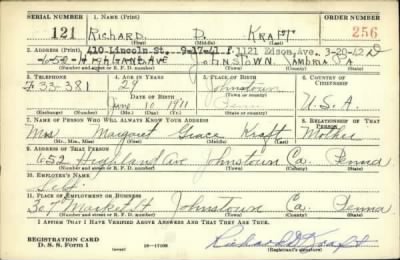 SERIAL NUMBER 1. NAME (Print) ORDER NUMBER
121 RICHARD D. KRAFT 256
(First) (Middle) (Last)
2. ADDRESS (Print) 410 Lincoln St. 9-17-41 1121 Edson Ave. 3-20-42
652 HIGHLAND AVE JOHNSTOWN CAMBRIA PA
(Number and street or R. F. D. number) (Town) (County) (State)
3. TELEPHONE 4. AGE IN YEARS 5. PLACE OF BIRTH 6. COUNTRY OF CITIZENSHIP
33-381 29 Johnstown
DATE OF BIRTH (Town or county)
June 10 1911 Penn U.S.A.
(Exchange) (Number) (Mo.) (Day) (Yr.) (State or country)
7. NAME OF PERSON WHO WILL ALWAYS KNOW YOUR ADDRESS 8. RELATIONSHIP OF THAT PERSON
Mrs Margaret Grace Kraft Mother
(Mr., Mrs., Miss) (First) (Middle) (Last)
9. ADDRESS OF THAT PERSON
652 Highland av Johnstown Ca. Penna
(Number and street or R. F. D. number) (Town) (County) (State)
10. EMPLOYER'S NAME
Self
11. PLACE OF EMPLOYMENT OR BUSINESS
307 Market St Johnstown Ca. Penna
(Number and street or R. F. D. number) (Town) (County) (State)
I AFFIRM THAT I HAVE VERIFIED ABOVE ANSWERS AND THAT THEY ARE TRUE.
REGISTRATION CARD
D. S. S. Form 1 (over) 16-17105 Richard D Kraft
(Registrant's signature)